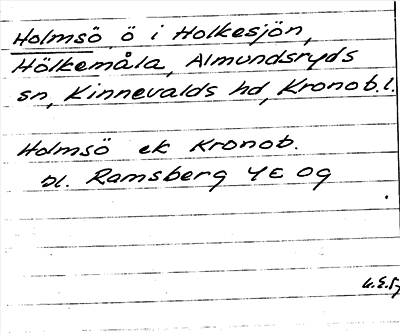 Holmsö ö i Holkesjön,
Hölkemåla, Almundsryds
sn, Kinnevalds hd, Kronob.l.
Holmsö ek Kronob.
bl. Ramsberg 4E og